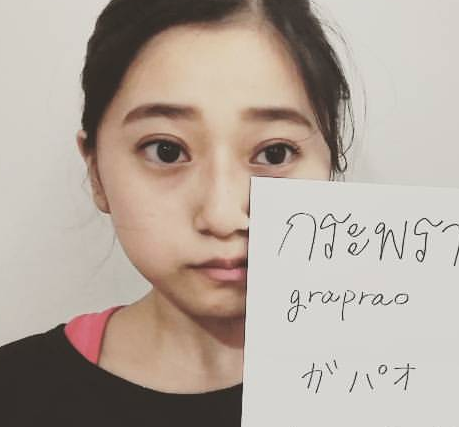 กระพรา
graprao
ガパオ